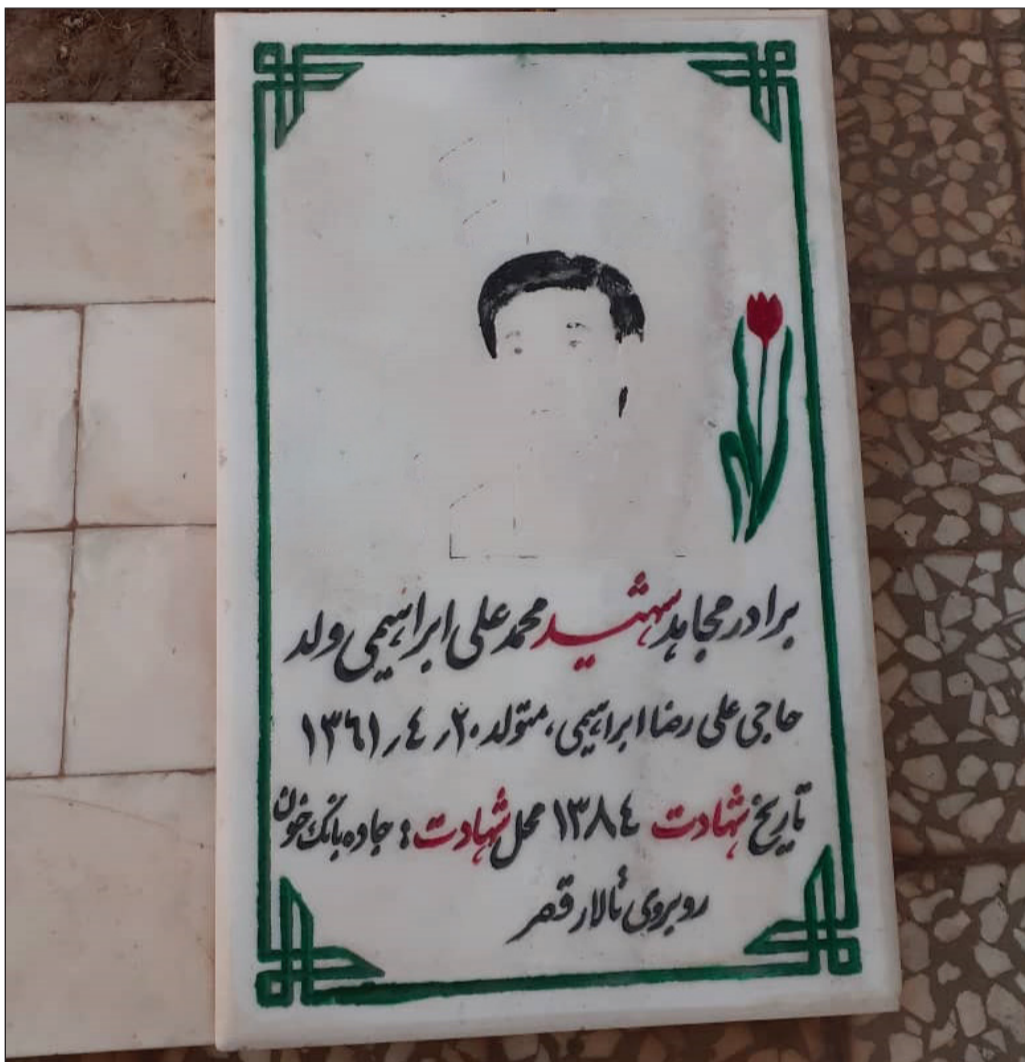 برادر مجاهد شهید محمد علی ابراهیمی ولد
حاجی علی رضا ابراهیمی، متولد ۲۰ر٤ر۱۳٦۱
تاریخ شهادت ۱۳۸٤ محل شهادت: جاده بانک خون
روبروی تالار قصر